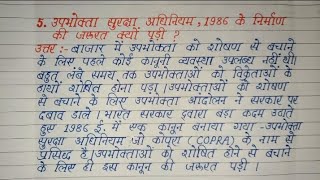 5. उपभोक्ता सुरक्षा अधिनियम, 1986 के निर्माण
की जरूरत क्यों पड़ी ?
उत्तर :- बाजार में उपभोक्ता को शोषण से बचाने
के लिए पहले कोई कानूनी व्यवस्था उपलब्ध नहीं थी।
बहुत लंबे समय तक उपभोक्ताओं को विक्रेताओं के
हाथों शोषित होना पड़ा। उपभोक्ताओं को शोषण
से बचाने के लिए उपभोक्ता आंदोलन ने सरकार पर
दबाव डाले। भारत सरकार द्वारा बड़ा कदम उठाते
हुए 1986 ई. में एक कानून बनाया गया -उपभोक्ता
सुरक्षा अधिनियम जो कोपरा (COPRA) के नाम से
प्रसिद्ध है। उपभोक्ताओं को शोषित होने से बचाने
के लिए ही इस कानून की जरूरत पड़ी ।